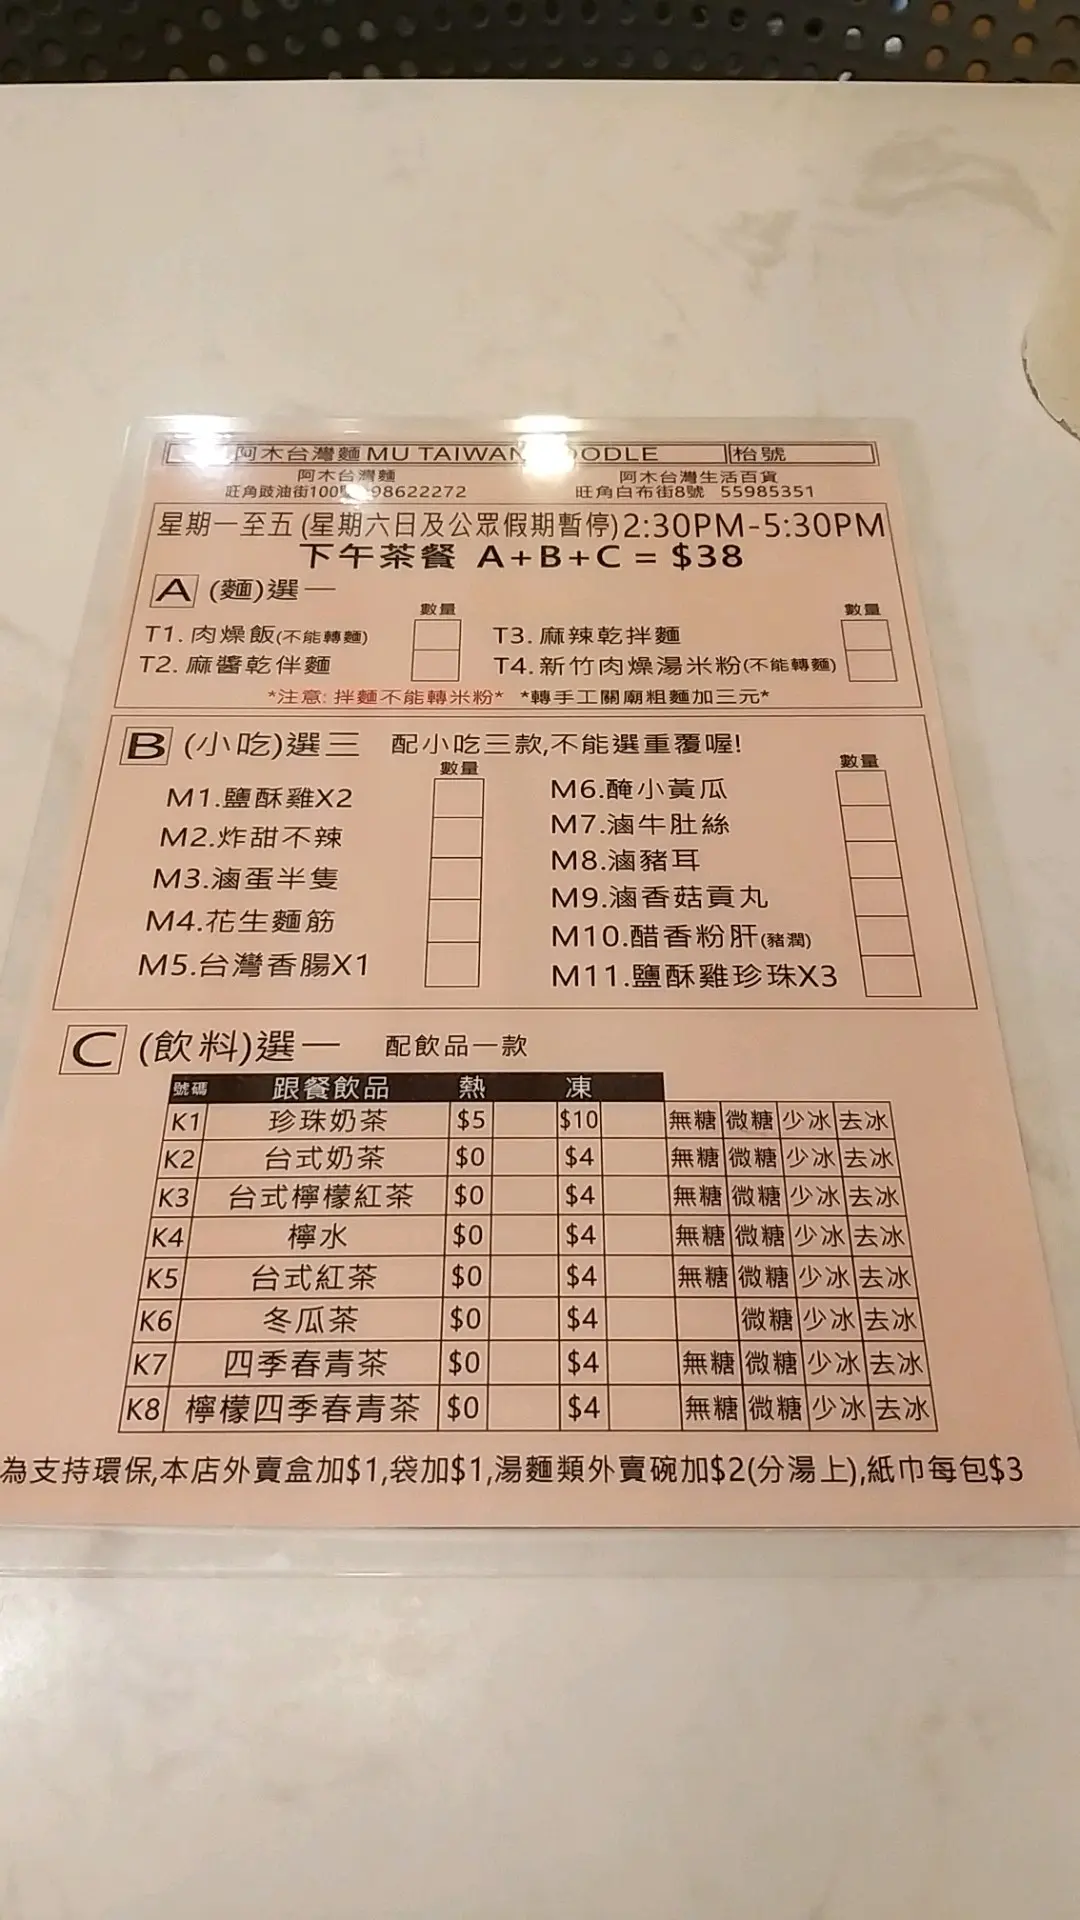 阿木台灣麵 MU TAIWAN NOODLE 枱號
阿木台灣麵 阿木台灣生活百貨
旺角豉油街100號 98622272 旺角白布街8號 55985351
星期一至五 (星期六日及公眾假期暫停) 2:30PM-5:30PM
下午茶餐 A+B+C = $38
A (麵)選一
數量 數量
T1. 肉燥飯(不能轉麵) T3. 麻辣乾拌麵
T2. 麻醬乾伴麵 T4. 新竹肉燥湯米粉(不能轉麵)
*注意: 拌麵不能轉米粉* *轉手工關廟粗麵加三元*
B (小吃)選三 配小吃三款,不能選重覆喔!
數量 數量
M1.鹽酥雞X2 M6.醃小黃瓜
M2.炸甜不辣 M7.滷牛肚絲
M3.滷蛋半隻 M8.滷豬耳
M4.花生麵筋 M9.滷香菇貢丸
M5.台灣香腸X1 M10.醋香粉肝(豬潤)
M11.鹽酥雞珍珠X3
C (飲料)選一 配飲品一款
號碼 跟餐飲品 熱 凍
K1 珍珠奶茶 $5 $10 無糖 微糖 少冰 去冰
K2 台式奶茶 $0 $4 無糖 微糖 少冰 去冰
K3 台式檸檬紅茶 $0 $4 無糖 微糖 少冰 去冰
K4 檸水 $0 $4 無糖 微糖 少冰 去冰
K5 台式紅茶 $0 $4 無糖 微糖 少冰 去冰
K6 冬瓜茶 $0 $4 微糖 少冰 去冰
K7 四季春青茶 $0 $4 無糖 微糖 少冰 去冰
K8 檸檬四季春青茶 $0 $4 無糖 微糖 少冰 去冰
為支持環保,本店外賣盒加$1,袋加$1,湯麵類外賣碗加$2(分湯上),紙巾每包$3